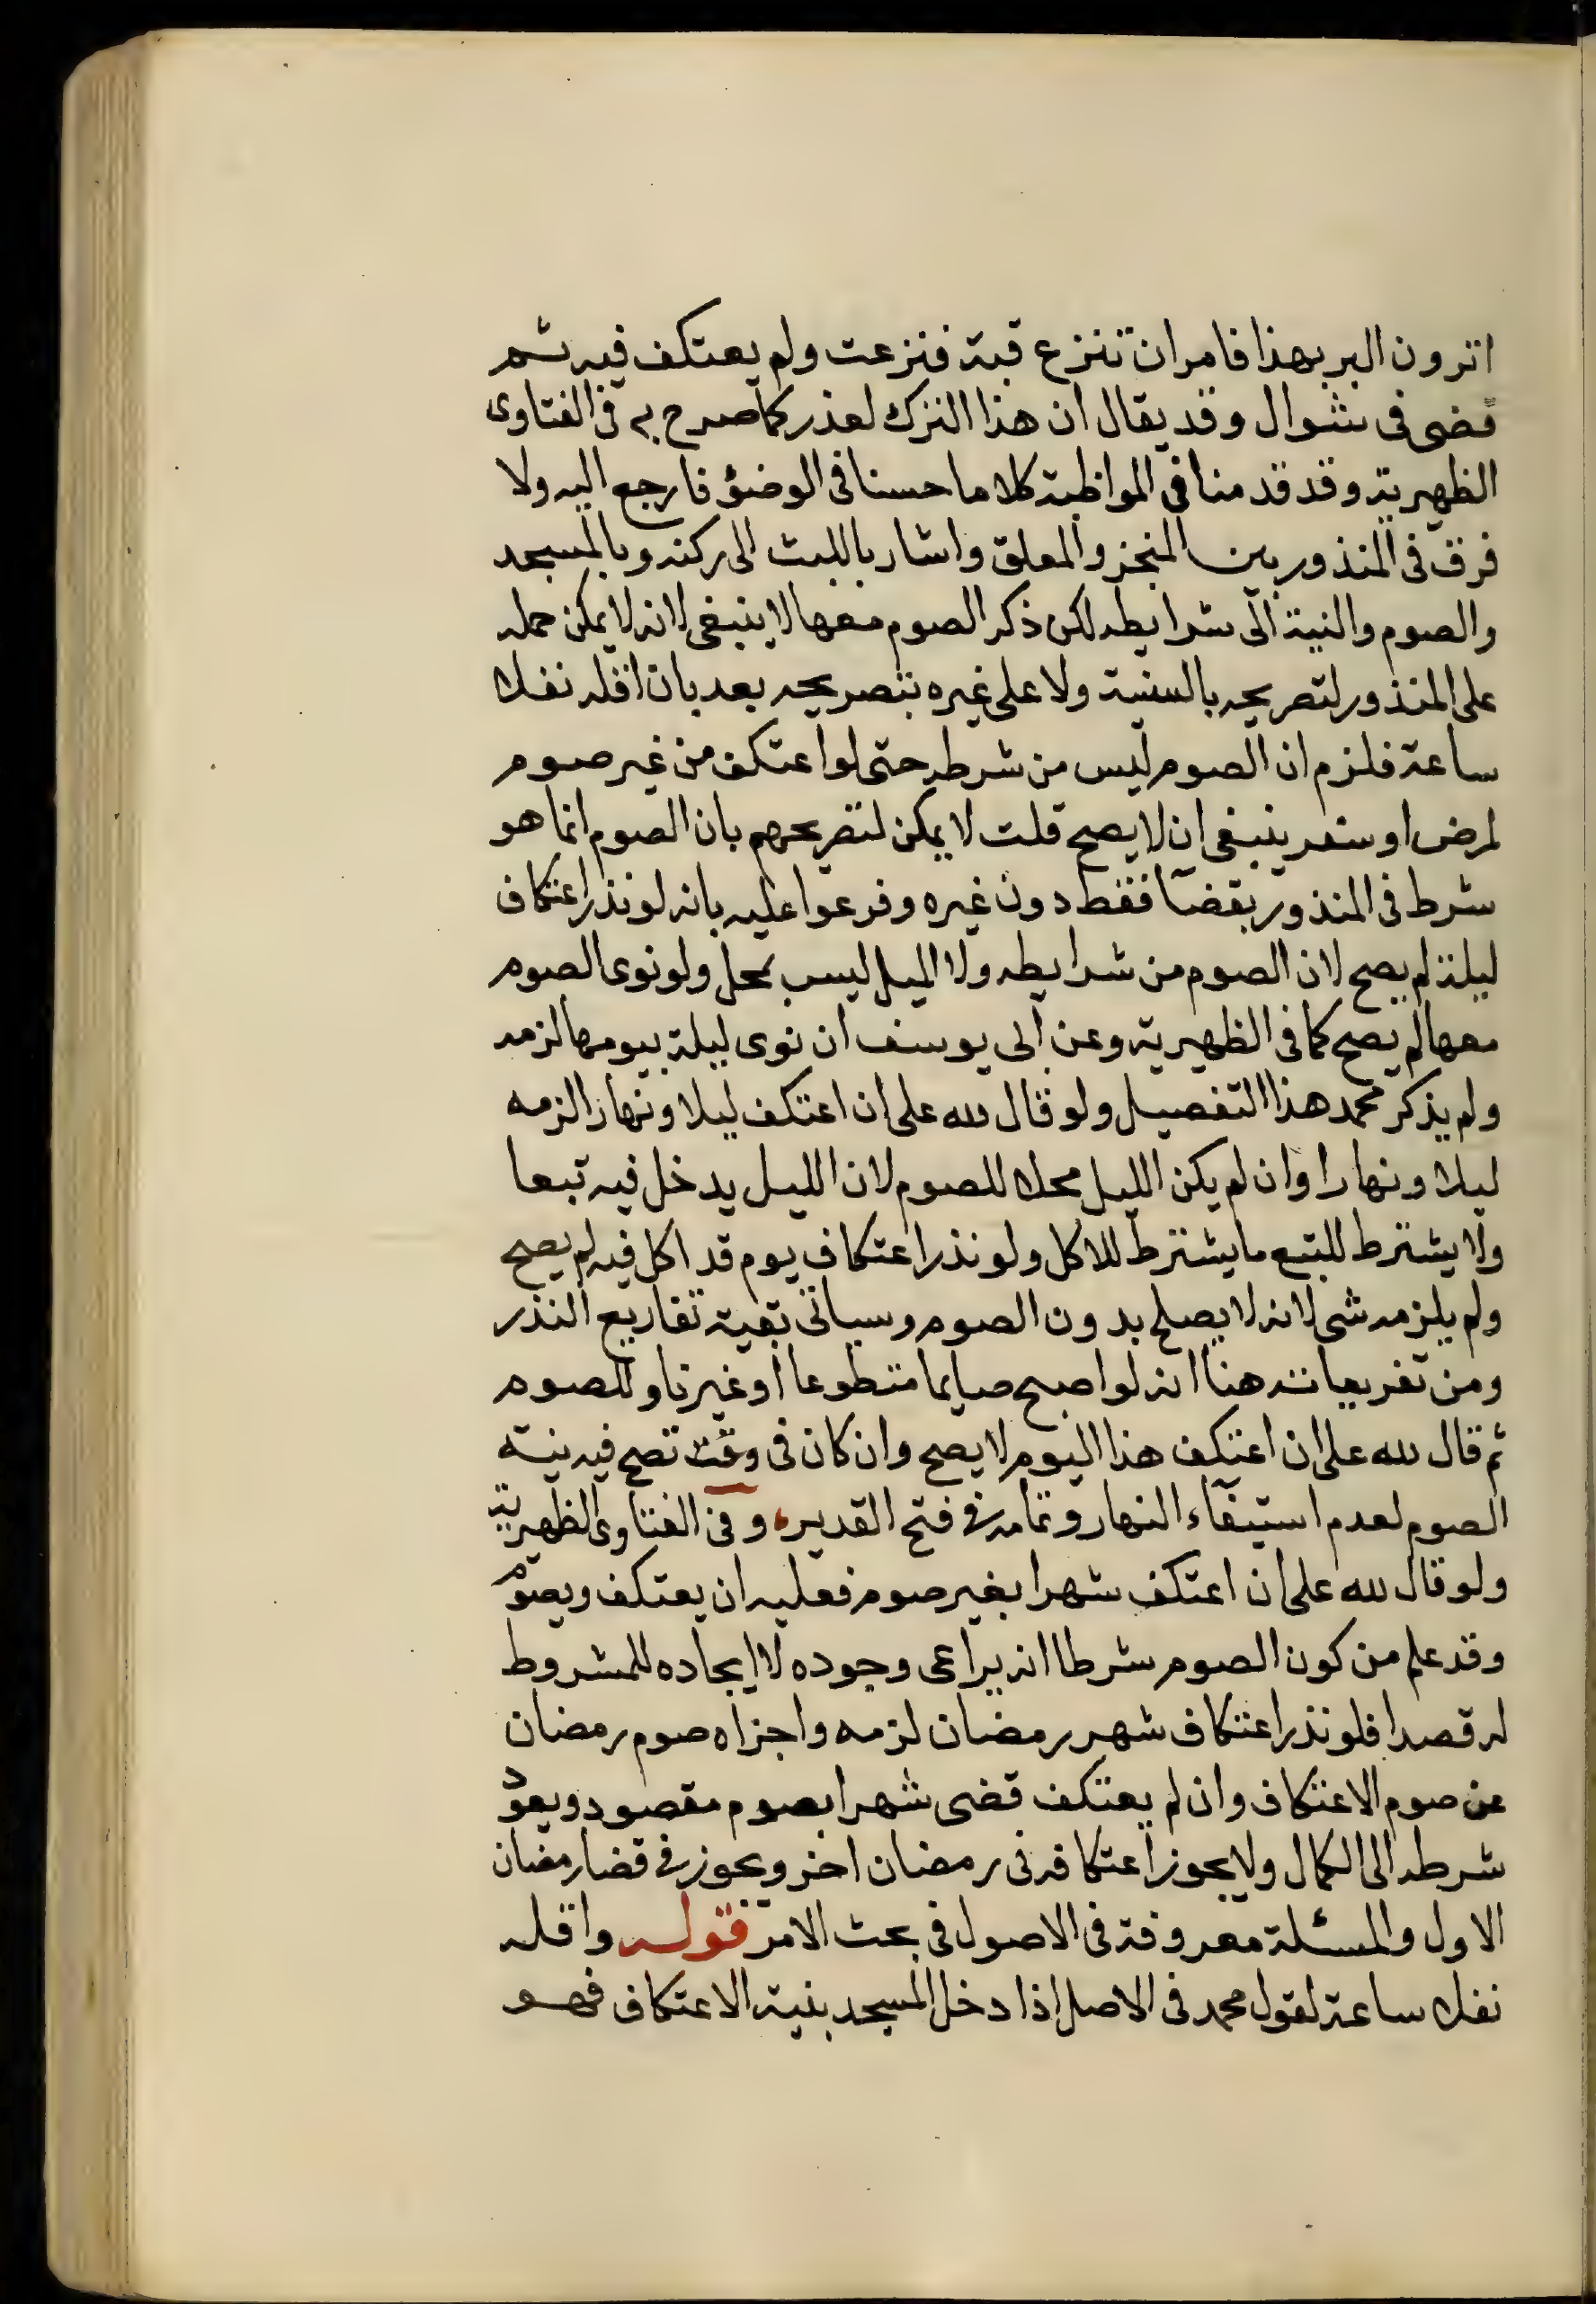 اترون البر بهذا فامر ان تنزع قبة فنزعت ولم يعتكف فيه ثم
قضى فى شوال وقد يقال ان هذا الترك لعذر كما صرح به فى الفتاوى
الظهيرية وقد قدمنا فى المواظبة كلاما حسنا فى الوضؤ فارجع اليه ولا
فرق فى المنذور بين المنجز والمعلق واشار باللبث الى ركنه وبالمسجد
والصوم والنية الى شرايطه لكن ذكر الصوم معها لا ينبغى لانه لا يمكن حمله
على المنذور لتصريحه بالسنية ولا على غيره بتصريحه بعد بان اقله نفلا
ساعة فلزم ان الصوم ليس من شرطه حتى لو اعتكف من غير صوم
لمرض او سفر ينبغى ان لا يصح قلت لا يمكن لتصريحهم بان الصوم انما هو
شرط فى المنذور بقضآ فقط دون غيره وفرعوا عليه بانه لو نذر اعتكاف
ليلة لم يصح لان الصوم من شرايطه ولا الميل ليس بمحل ولو نوى الصوم
معها لم يصح كما فى الظهيرية وعن ابى يوسف ان نوى ليلة بيومها لزمه
ولم يذكر محمد هذا التفصيل ولو قال لله على ان اعتكف ليلا ونهارا لزمه
ليلا ونهارا وان لم يكن الليل محلا للصوم لان الليل يدخل فيه تبعا
ولا يشترط للتبع ما يشترط للاكل ولو نذر اعتكاف يوم قد اكل فيه لم يصح
ولم يلزمه شى لانه لا يصلح بدون الصوم وسياتى بقية تفاريع النذر
ومن تفريعاته هنا انه لو اصبح صايما متطوعا او غير ناو للصوم
ثم قال لله على ان اعتكف هذا اليوم لا يصح وان كان فى وقت تصح فيه نية
الصوم لعدم استيفآء النهار وتمامه فى فتح القدير وفى الفتاوى الظهيرية
ولو قال لله على ان اعتكف شهرا بغير صوم فعليه ان يعتكف ويصوم
وقد علم من كون الصوم شرطا انه يراعى وجوده لا ايجاده للمشروط
له قصدا فلو نذر اعتكاف شهر رمضان لزمه واجزاه صوم رمضان
عن صوم الاعتكاف وان لم يعتكف قضى شهرا بصوم مقصود ويعود
شرطه الى الكمال ولا يجوز اعتكافه فى رمضان اخر ويجوز فى قضا رمضان
الاول والمسئلة معروفة فى الاصول فى بحث الامر قوله واقله
نفلا ساعة لقول محمد فى الاصل اذا دخل المسجد بنية الاعتكاف فهو